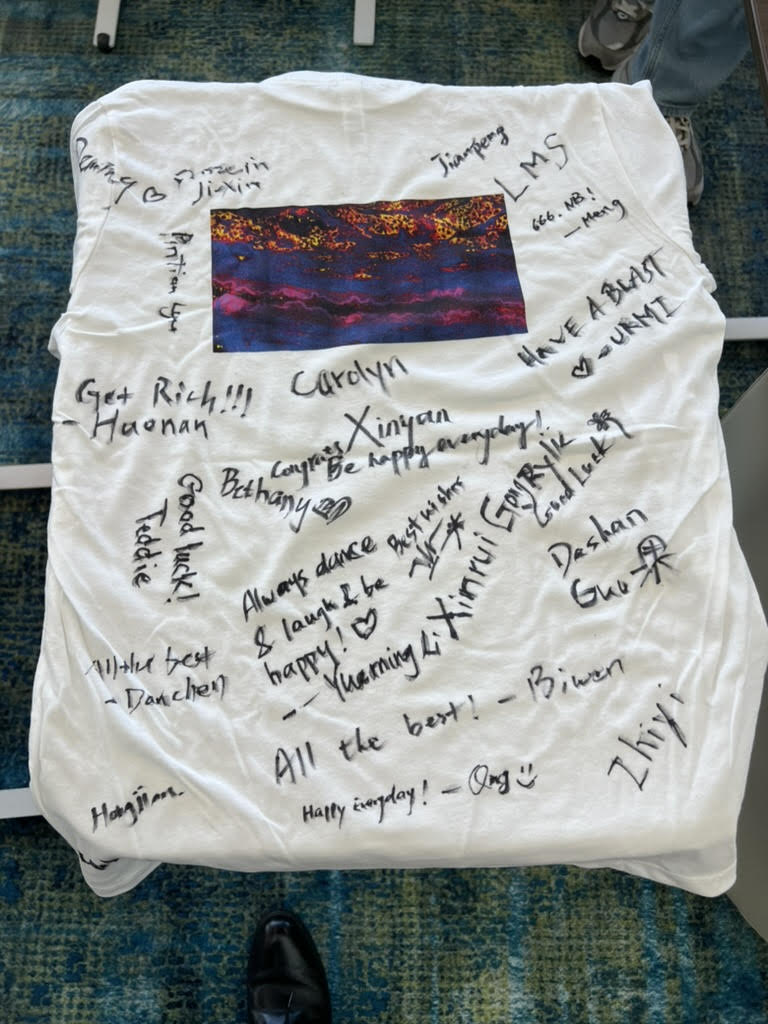 Jiampeng
LMS
Jiaxin
666. NB!
— Meng
HAVE A BLAST
♡ - URMI
Get Rich!!!
- Haonan
Carolyn
Xinyan
Congrats
Be happy everyday!
Bethany
Good Luck
Good luck!
Teddie
Best wishes
Always dance
& laugh & be
happy! ♡
-- Yuanming Li
Xinrui
Dashan
Guo 果
All the best
- Danchen
All the best! - Biwen
Zhiyi
Happy Everyday! —